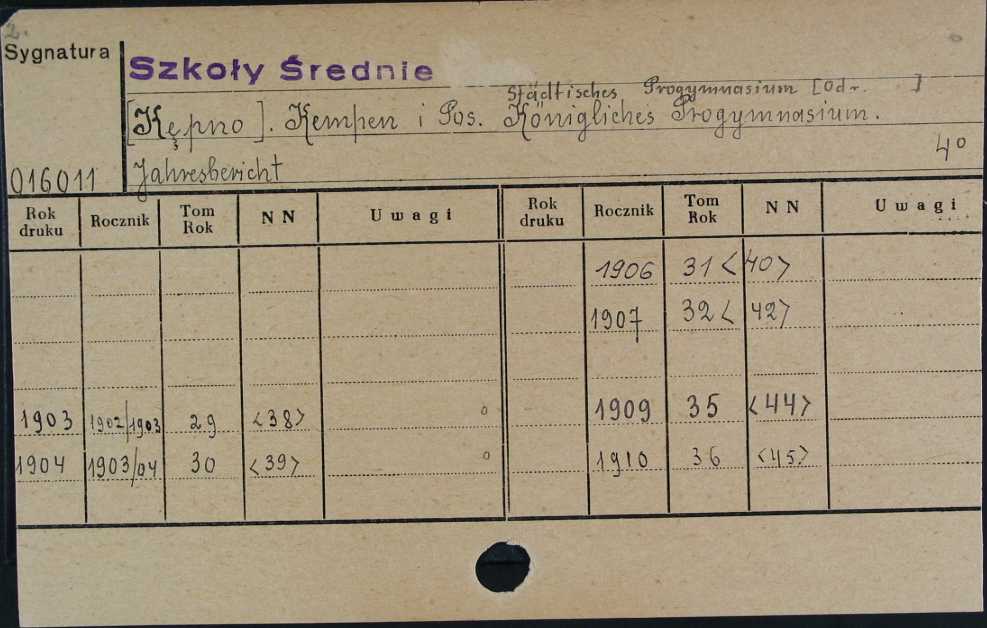 2.
Sygnatura
Szkoły Średnie
Städtisches Progymnasium [od r. ]
[Kępno]. Kempen i Pos. Königliches Progymnasium.
4°
016011 Jahresbericht
Rok druku Rocznik Tom Rok NN Uwagi Rok druku Rocznik Tom Rok NN Uwagi
1906 31 <40>
1907 32 <42>
1903 1902/1903 29 <38> 1909 35 <44>
1904 1903/04 30 <39> 1910 36 <45>